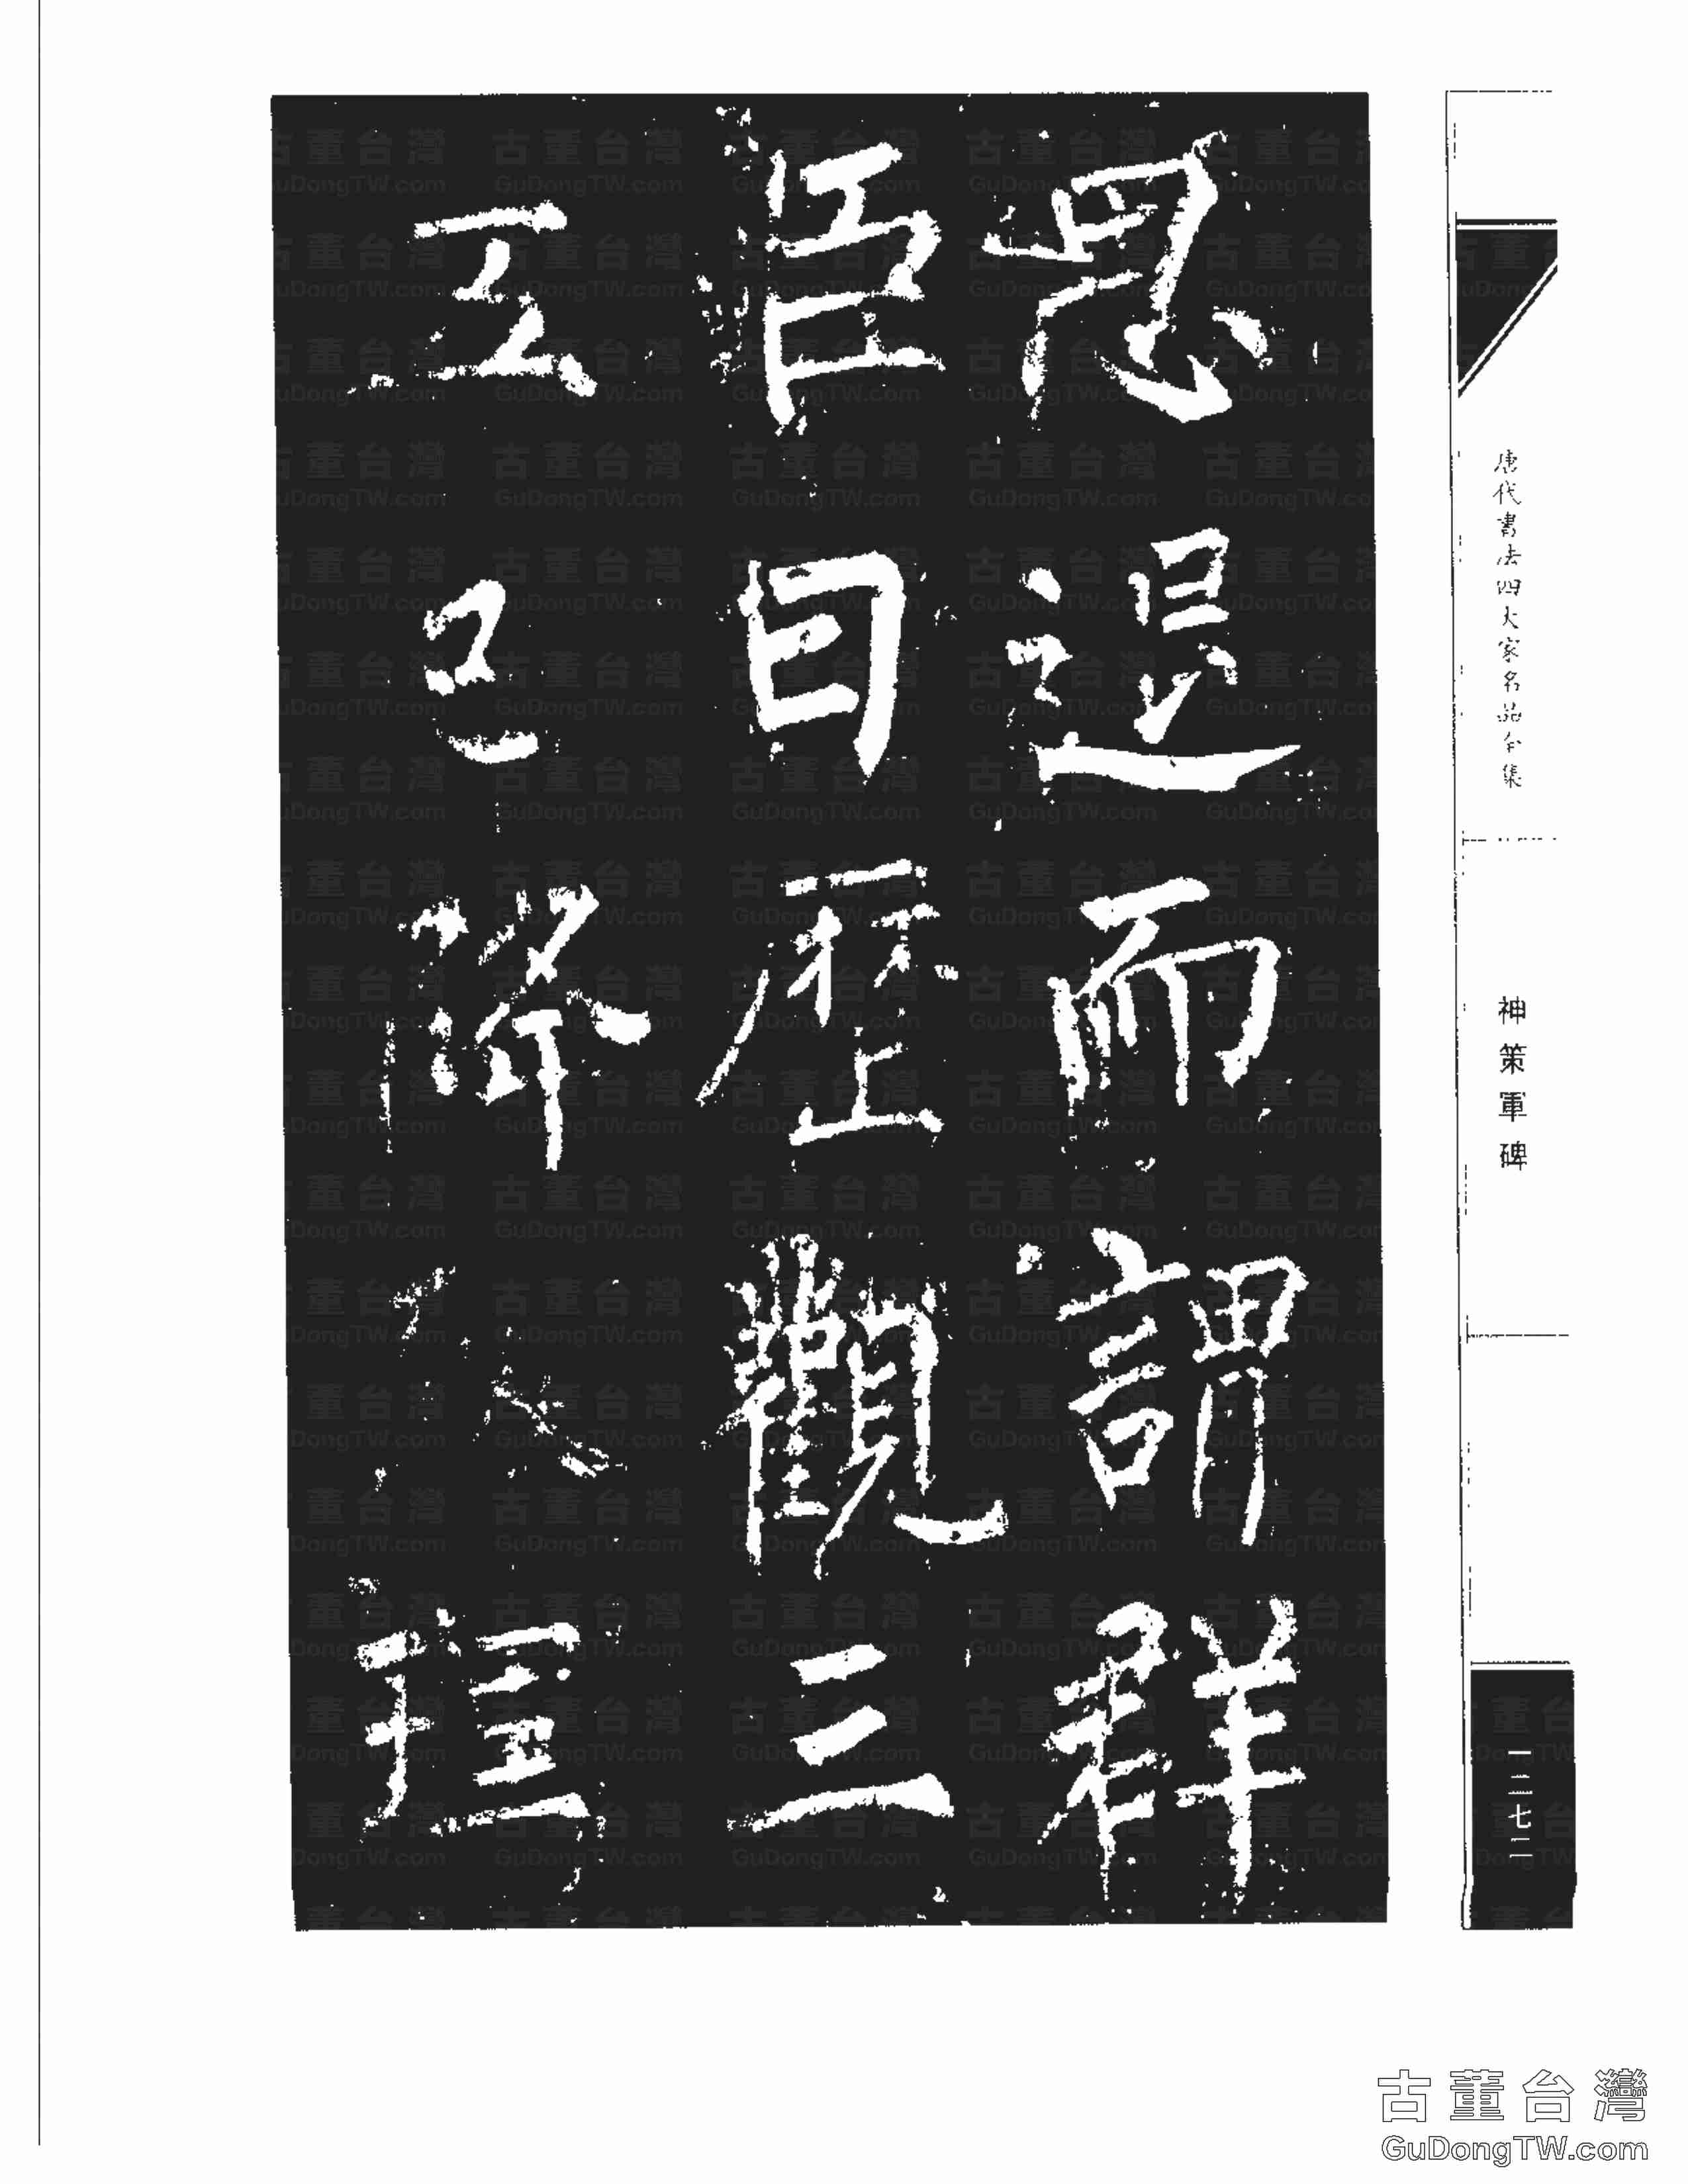 思退而謂群
臣曰歷觀三
五已降理
唐代書法四大家名品全集
神策軍碑
一二七二
古董台灣
GuDongTW.com